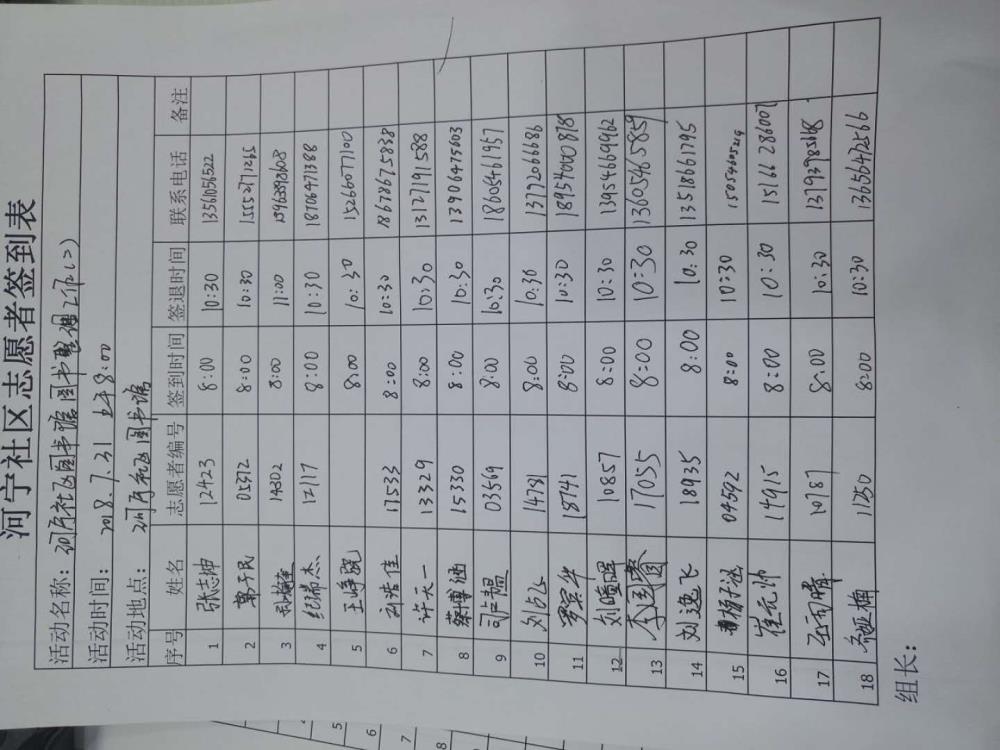 河宁社区志愿者签到表
活动名称：河宁社区图书馆图书整理
活动时间：2018.7.31 上午8:00
活动地点：河宁社区图书馆
序号 姓名 志愿者编号 签到时间 签退时间 联系电话 备注
1 张志坤 12423 8:00 10:30 13561056522
2 05372 8:00 10:30 15552771265
3 14302 8:00 11:00
4 纪瑞杰 12117 8:00 10:30 18706471388
5 王峥骁 8:00 10:30 15266077100
6 孙浩佳 17533 8:00 10:30 18678675838
7 许天一 13329 8:00 10:30 13127191588
8 蔡博涵 15330 8:00 10:30 13906475603
9 03569 8:00 10:30 18605461957
10 14781 8:00 10:30 13792066686
11 18741 8:00 10:30 18954000878
12 10857 8:00 10:30 13954669962
13 17055 8:00 10:30 13605465859
14 刘逸飞 18935 8:00 10:30 13518661795
15 杨子涵 04592 8:00 10:30 15054605219
16 崔元帅 14915 8:00 10:30 15166286007
17 10787 8:00 10:30
18 11250 8:00 10:30 13656472566
组长：
4
5
6
7
8